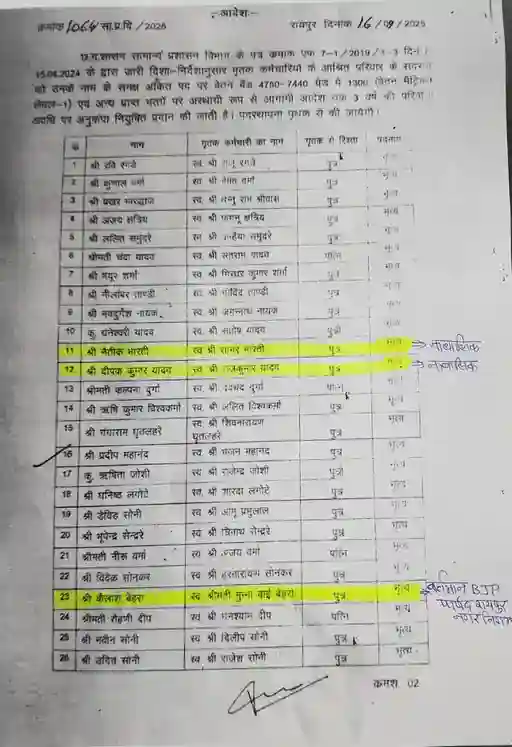 -: आदेश :-
क्रमांक 1064 सा.प्र.वि / 2025 रायपुर दिनांक 16/09/2025
छ.ग.शासन सामान्य प्रशासन विभाग के पत्र क्रमांक एफ 7-1/2019/1-3 दिनांक
के द्वारा जारी दिशा-निर्देशानुसार मृतक कर्मचारियों के आश्रित परिवार के सदस्य
को उनके नाम के समक्ष अंकित पद पर वेतन बैंड 4750-7440 ग्रेड पे 1300 (वेतन मैट्रिक्स
लेवल-1) एवं अन्य प्राप्त भत्तों पर अस्थायी रूप से आगामी आदेश तक 3 वर्ष की परिवीक्षा
अवधि पर अनुकंपा नियुक्ति प्रदान की जाती है। पदस्थापना पृथक से की जायेगी।
नाम मृतक कर्मचारी का नाम मृतक से रिश्ता पदनाम
1 श्री रवि रगड़े स्व श्री रगड़े पुत्र भृत्य
2 श्री कुणाल वर्मा स्व श्री वर्मा पुत्र भृत्य
3 श्री प्रखर भारद्वाज स्व श्री राम श्रीवास पुत्र भृत्य
4 श्री अजय क्षत्रिय स्व श्री फागनू क्षत्रिय पुत्र भृत्य
5 श्री ललित समुंदरे स्व श्री कन्हैया समुंदरे पुत्र भृत्य
6 श्रीमती चंदा यादव स्व श्री संतराम यादव पत्नि भृत्य
7 श्री मयूर शर्मा स्व श्री गिरधर कुमार शर्मा पुत्र भृत्य
8 श्री नीलांबर ताण्डी स्व श्री गोविंद ताण्डी पुत्र भृत्य
9 श्री नवदुर्गेश नायक स्व श्री जगन्नाथ नायक पुत्र भृत्य
10 कु. धनेश्वरी यादव स्व श्री संतोष यादव पुत्री भृत्य
11 श्री नैतीक भारती स्व श्री सागर भारती पुत्र भृत्य → नाबालिक
12 श्री दीपक कुमार यादव स्व श्री राजकुमार यादव पुत्र भृत्य → नाबालिक
13 श्रीमती कल्पना दुर्गा स्व. श्री दुर्गा पत्नि भृत्य
14 श्री ऋषि कुमार विश्वकर्मा स्व. श्री ललित विश्वकर्मा पुत्र भृत्य
15 श्री गंगाराम घृतलहरे स्व श्री शिवनारायण घृतलहरे पुत्र भृत्य
16 श्री प्रदीप महानंद स्व श्री महानंद पुत्र भृत्य
17 कु. ऋषिता जोशी स्व श्री राजेन्द्र जोशी पुत्री भृत्य
18 श्री धनिष्ठ लगोटे स्व. श्री शारदा लगोटे पुत्र भृत्य
19 श्री डेविड सोनी स्व श्री प्रभुलाल पुत्र भृत्य
20 श्री भूपेन्द्र सेन्द्रे स्व श्री त्रिनाथ सेन्द्रे पुत्र भृत्य
21 श्रीमती नीरू वर्मा स्व श्री वर्मा पत्नि भृत्य
22 श्री विवेक सोनकर स्व श्री सोनकर पुत्र भृत्य
23 श्री कैलाश बेहरा स्व श्रीमती मुन्ना बाई बेहरा पुत्र भृत्य वर्तमान BJP
24 श्रीमती रोहणी दीप स्व श्री घनश्याम दीप पत्नि भृत्य पार्षद रायपुर
25 श्री नवीन सोनी स्व श्री दिलीप सोनी पुत्र भृत्य नगर निगम
26 श्री उदित सोनी स्व श्री राजेश सोनी पुत्र भृत्य
क्रमश 02